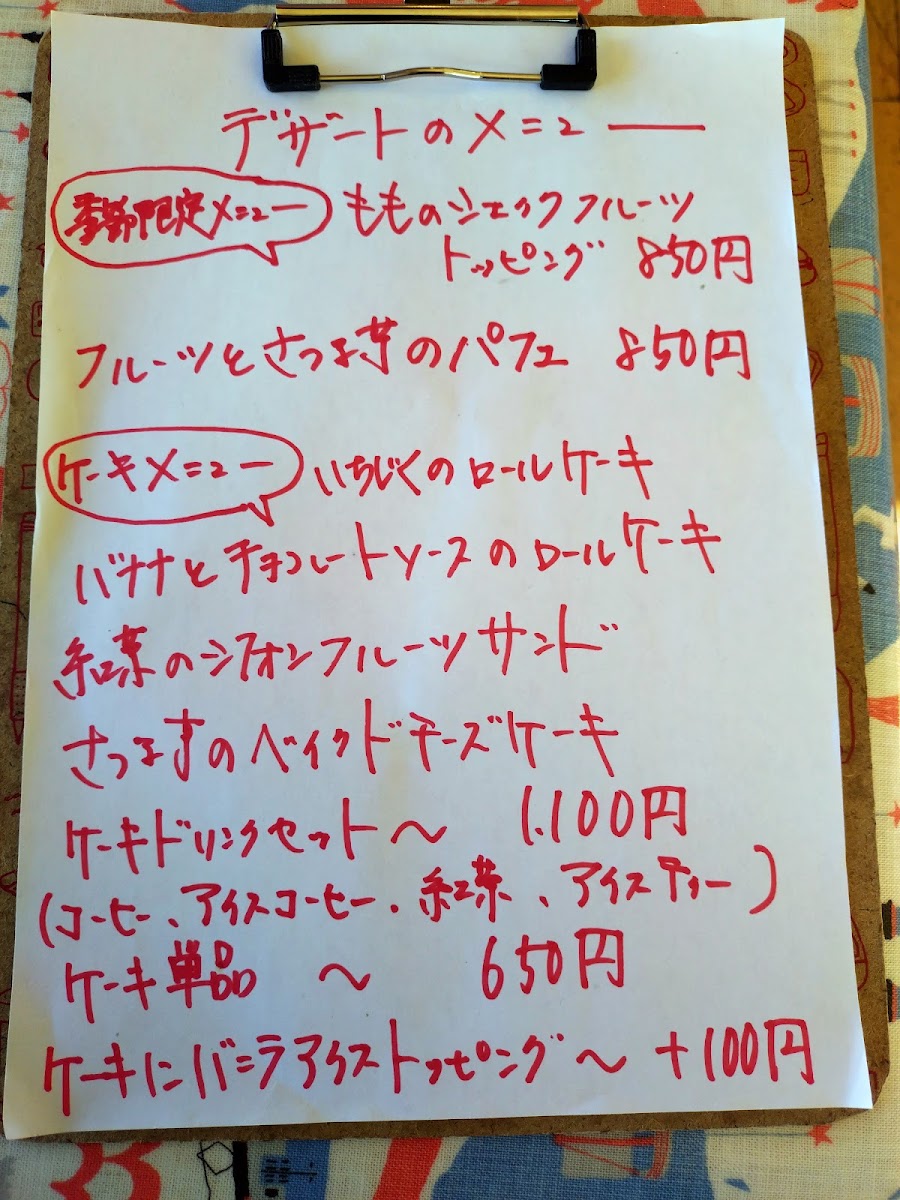 デザートのメニュー
季節限定メニュー もものシェイクフルーツ
トッピング 850円
フルーツとさつま芋のパフェ 850円
ケーキメニュー いちじくのロールケーキ
バナナとチョコレートソースのロールケーキ
紅茶のシフォンフルーツサンド
さつま芋のベイクドチーズケーキ
ケーキドリンクセット〜 1.100円
(コーヒー、アイスコーヒー、紅茶、アイスティー)
ケーキ単品 〜 650円
ケーキにバニラアイストッピング〜 +100円